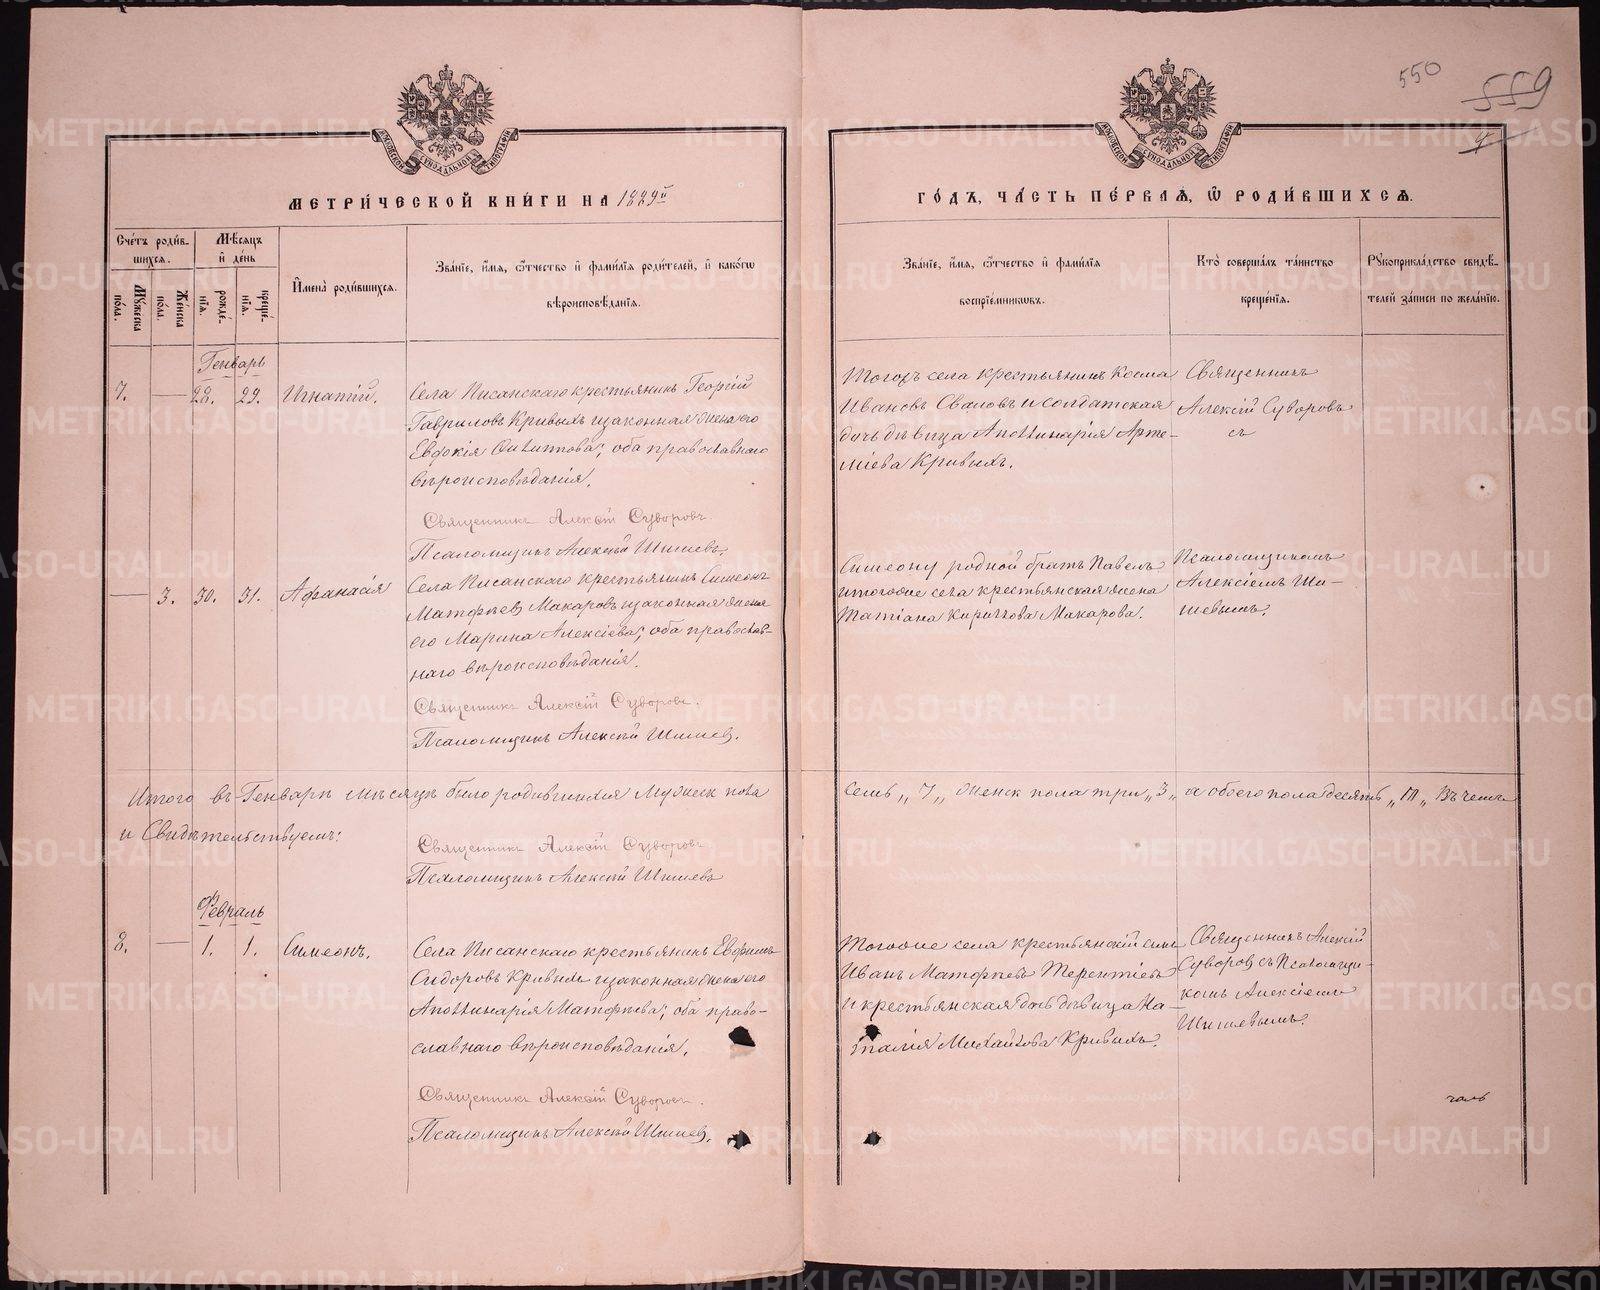 550
559
4
МОСКОВСКОЙ СѴНОДАЛЬНОЙ ТИПОГРАФІИ
МОСКОВСКОЙ СѴНОДАЛЬНОЙ ТИПОГРАФІИ
МЕТРИ́ЧЕСКОЙ КНИ́ГИ НА 1889й
ГО́ДЪ, ЧА́СТЬ ПЕ́РВАѦ, Ѿ РОДИ́ВШИХСѦ.
Сче́тъ роди́в-
шихсѧ.
Мѣ́сѧцъ
и҆ де́нь
Мꙋ́жеска
по́ла.
Же́нска
по́ла.
рожде́-
нїѧ.
креще́-
нїѧ.
И҆мена̀ роди́вшихсѧ.
Зва́нїе, и҆́мѧ, ѻ҆́тчество и҆ фами́лїѧ роди́телей, и҆ како́гѡ
вѣроисповѣ́данїѧ.
Зва́нїе, и҆́мѧ, ѻ҆́тчество и҆ фами́лїѧ
воспрїе́мникѡвъ.
Кто̀ соверша́лъ та́инство
креще́нїѧ.
Рꙋкоприкла́дство свидѣ́-
телей за́писи по жела́нїю.
Генварь
7. — 28. 29. Игнатій.
Села Писанскаго крестьянинъ Георгій
Гавриловъ Кривыхъ и законная жена его
Евдокія Филиппова; оба православнаго
вѣроисповѣданія.
Священникъ Алексѣй Суворовъ.
Псаломщикъ Алексѣй Шишевъ.
Тогожъ села крестьянинъ Косма
Ивановъ Сваловъ и солдатская
дочь дѣвица Аполлинарія Арте-
міева Кривыхъ.
Священникъ
Алексѣй Суворовъ
съ
— 3. 30. 31. Афанасія
Села Писанскаго крестьянинъ Симеонъ
Матфѣевъ Макаровъ и законная жена
его Марина Алексіева; оба православ-
наго вѣроисповѣданія.
Священникъ Алексѣй Суворовъ.
Псаломщикъ Алексѣй Шишевъ.
Симеону родной братъ Павелъ
и тогоже села крестьянская жена
Татіана Кириллова Макарова.
Псаломщикомъ
Алексіемъ Ши-
шевымъ.
Итого въ Генварѣ мѣсяцѣ было родившихся Мужеск пола
семь „7„ женск пола три „3„ а обоего пола десять „10„ Въ чемъ
и Свидѣтельствуемъ:
Священникъ Алексѣй Суворовъ
Псаломщикъ Алексѣй Шишевъ
Февраль
8. — 1. 1. Симеонъ.
Села Писанскаго крестьянинъ Евфимъ
Сидоровъ Кривыхъ и законная жена его
Аполлинарія Матфѣева; оба право-
славнаго вѣроисповѣданія.
Священникъ Алексѣй Суворовъ.
Псаломщикъ Алексѣй Шишевъ.
Тогоже села крестьянскій сынъ
Иванъ Матфѣевъ Терентіевъ
и крестьянская дочь дѣвица На-
талія Михайлова Кривыхъ.
Священникъ Алексѣй
Суворовъ съ Псаломщи-
комъ Алексіемъ
Шишевымъ.
METRIKI.GASO-URAL.RU